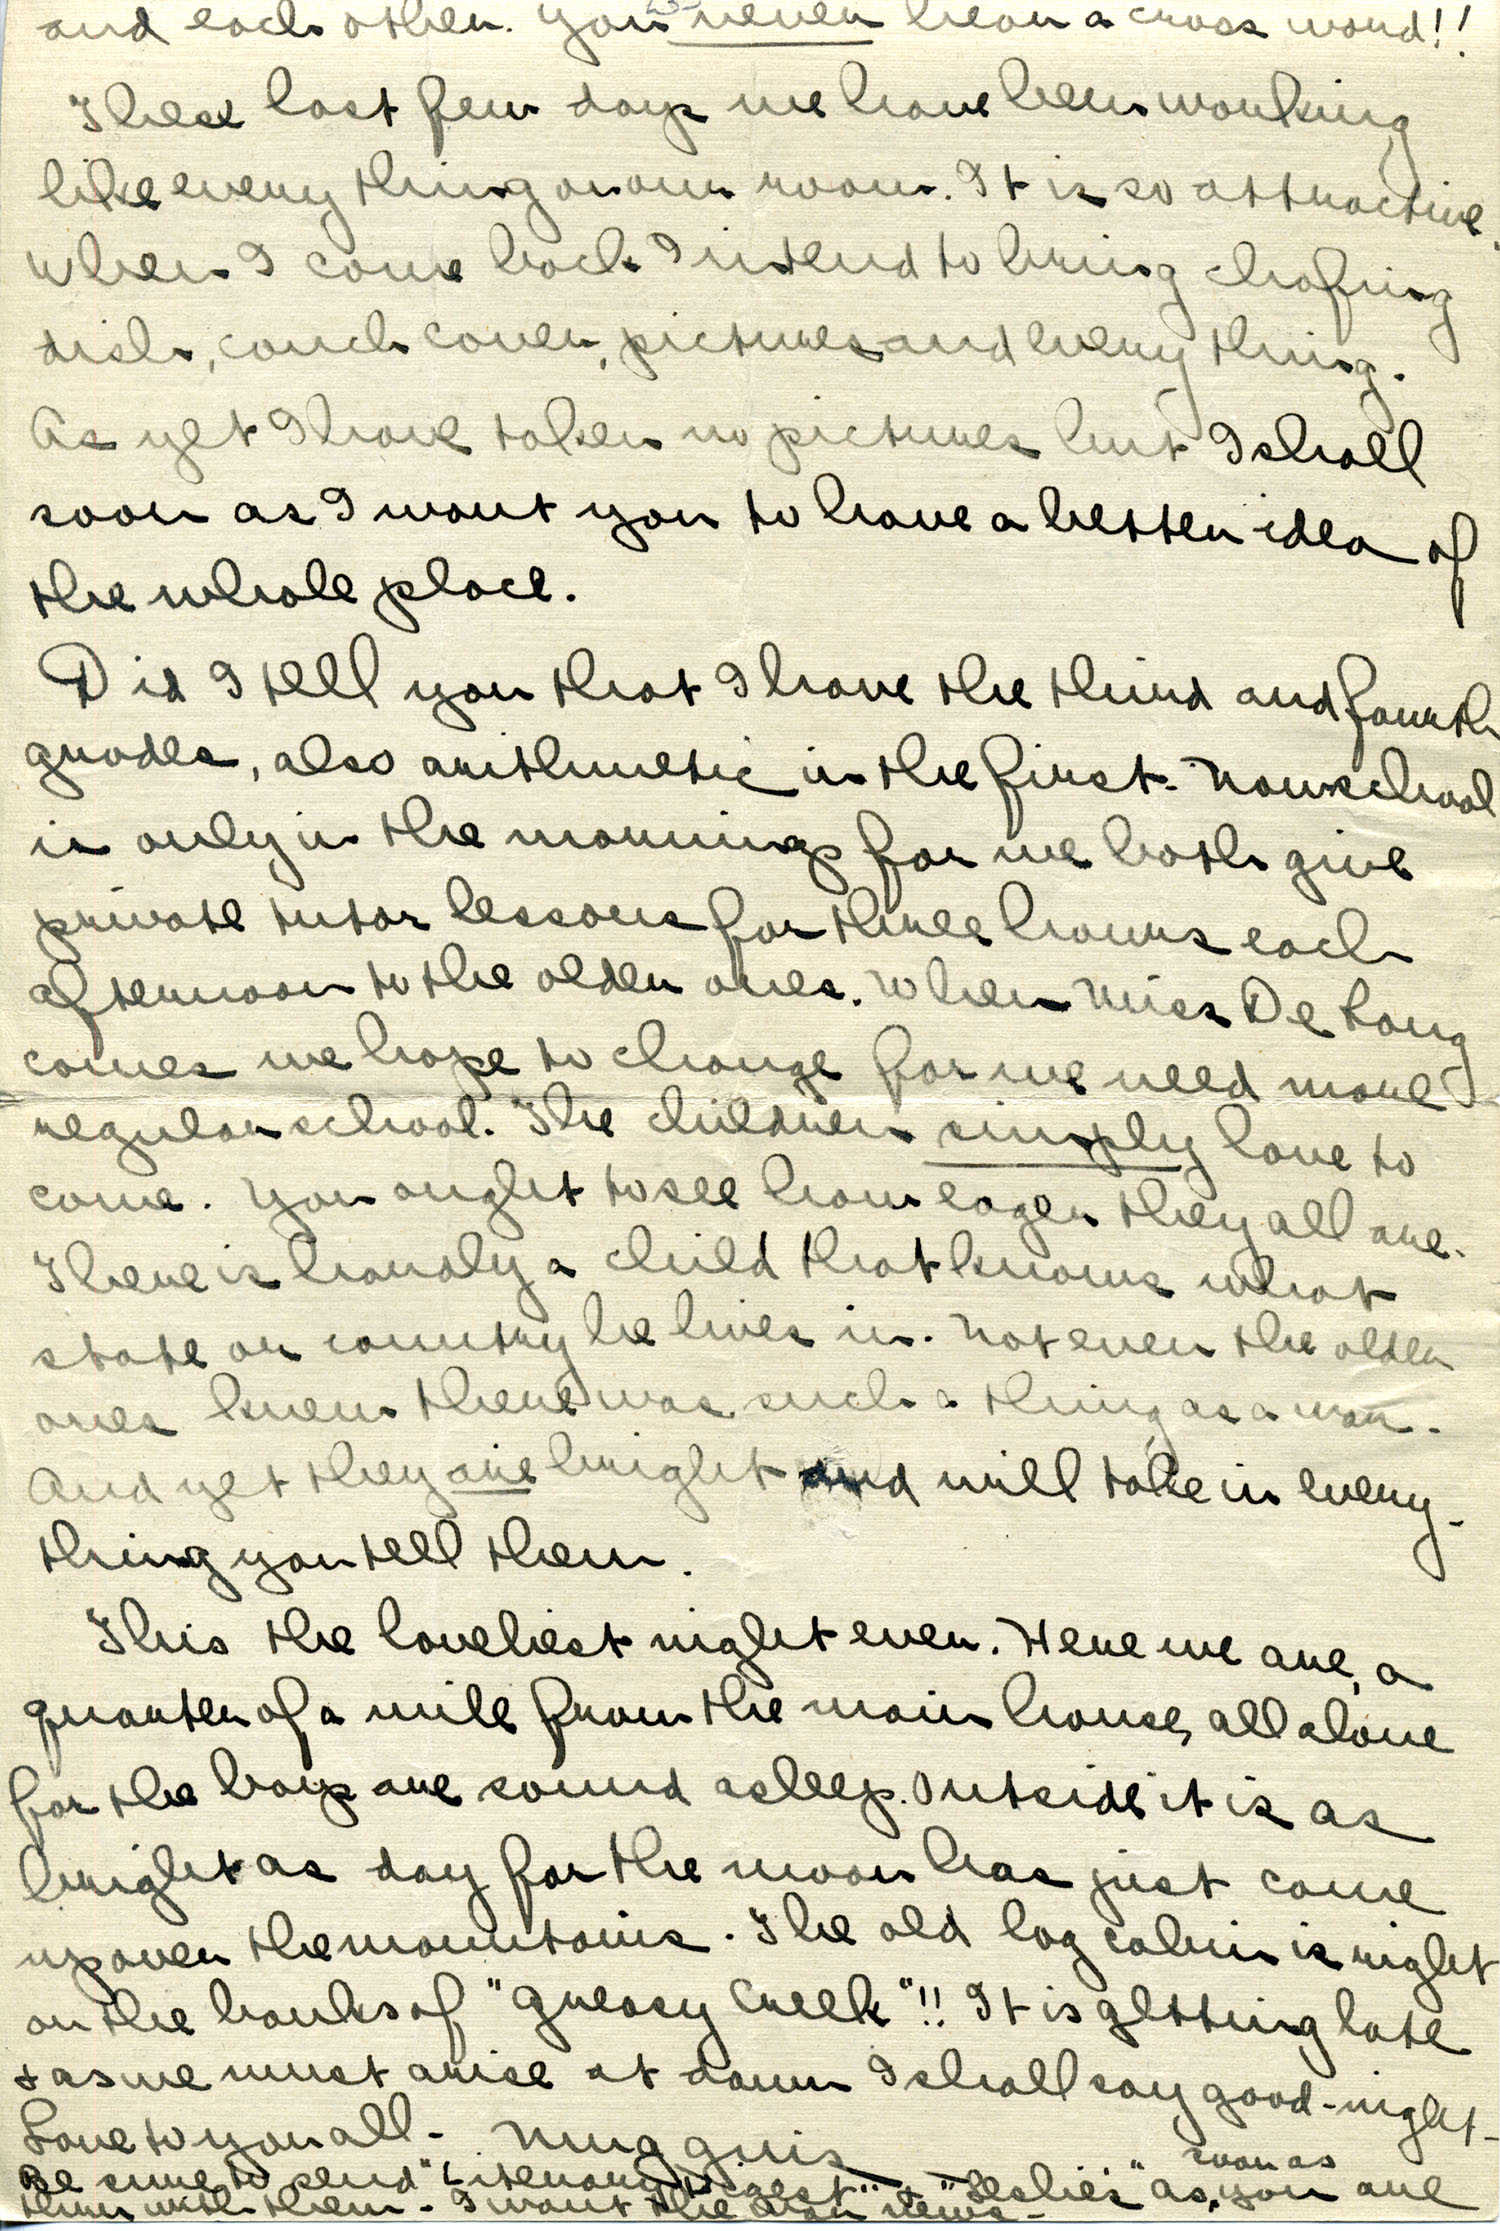 and each other. You never hear a cross word!!
These last few days we have been working
like every thing on our room. It is so attractive.
When I come back I intend to bring chafing
dish, couch cover, pictures and every thing.
As yet I have taken no pictures but I shall
soon as I want you to have a better idea of
the whole place.
Did I tell you that I have the third and fourth
grades, also arithmetic in the first. Now school
is only in the mornings for we both give
private tutor lessons for three hours each
afternoon to the older ones. When Miss De Long
comes we hope to change for we need more
regular school. The children simply love to
come. You ought to see how eager they all are.
There is hardly a child that knows what
state or country he lives in. Not even the older
ones knew there was such a thing as a war.
And yet they are bright and will take in every-
thing you tell them.
This the loveliest night ever. Here we are, a
quarter of a mile from the main house, all alone
for the boys are sound asleep. Outside it is as
bright as day for the moon has just come
up over the mountains. The old log cabin is right
on the banks of "Greasy Creek"!! It is getting late
& as we must arise at dawn I shall say good-night-
Love to you all -
soon as
Be sure to send "Literary Digest" & "Leslie's" as you are
thru with them - I want the war news -